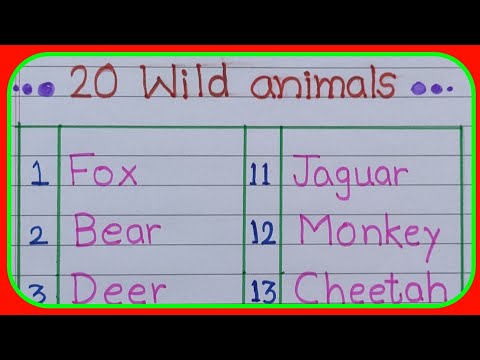 20 Wild animals
1 Fox 11 Jaguar
2 Bear 12 Monkey
3 Deer 13 Cheetah